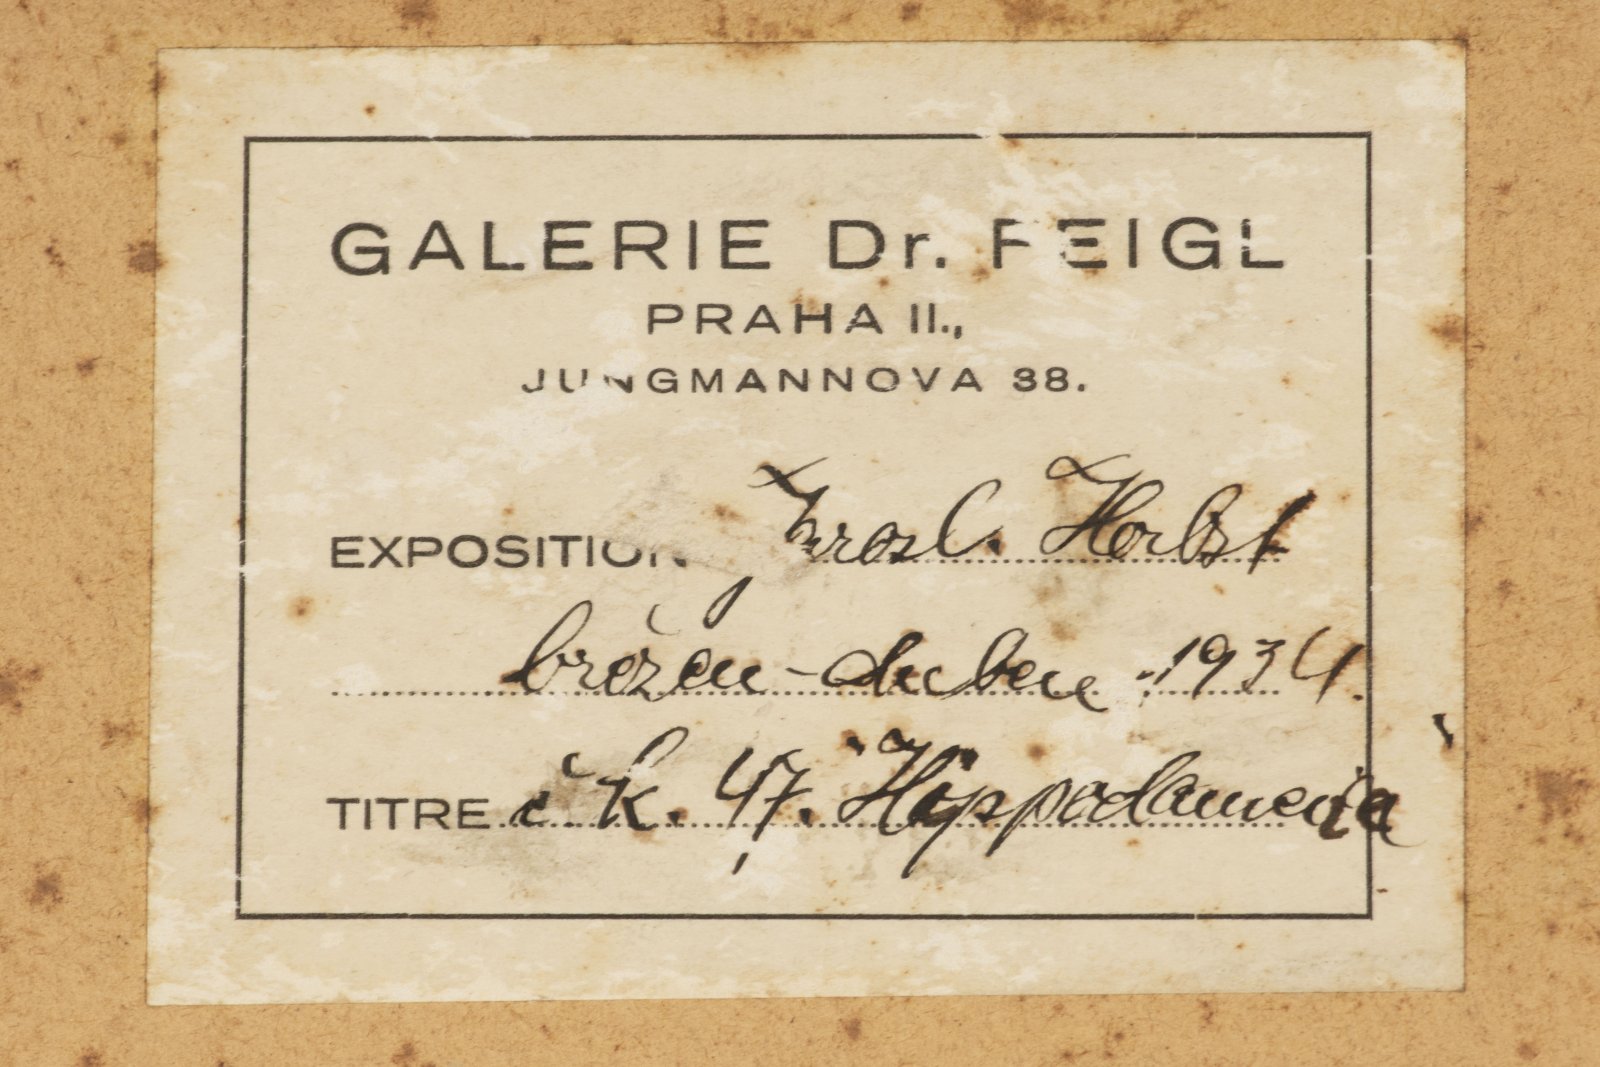 GALERIE Dr. FEIGL
PRAHA II.,
JUNGMANNOVA 38.
EXPOSITION Jarosl. Horbst
březen - duben 1934.
TITRE č k. 47. Hippodameia